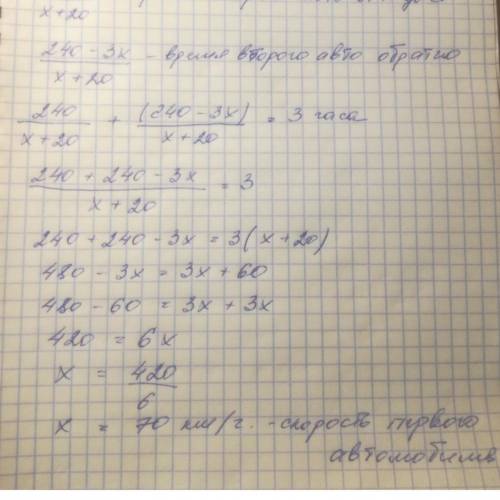 x+20
240 - 3x / x + 20 - время второго авто обратно
240 / x+20 + (240 - 3x) / x+20 = 3 часа
240 + 240 - 3x / x + 20 = 3
240 + 240 - 3x = 3(x+20)
480 - 3x = 3x + 60
480 - 60 = 3x + 3x
420 = 6x
x = 420 / 6
x = 70 км/ч. - скорость первого
автомобиля